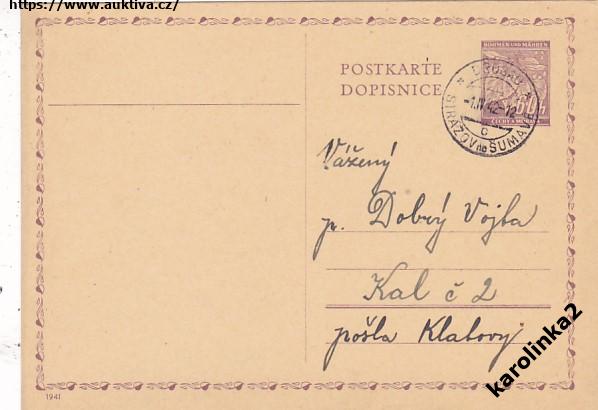 https://www.auktiva.cz/
POSTKARTE
DOPISNICE
BÖHMEN UND MÄHREN
60h
ČECHY A MORAVA
DROSAU
-1.IV 42-12
C
STRÁŽOV na ŠUMAVĚ
Vážený
p. Dobrý Vojta
Kal č 2
pošta Klatovy
1941
karolinka2